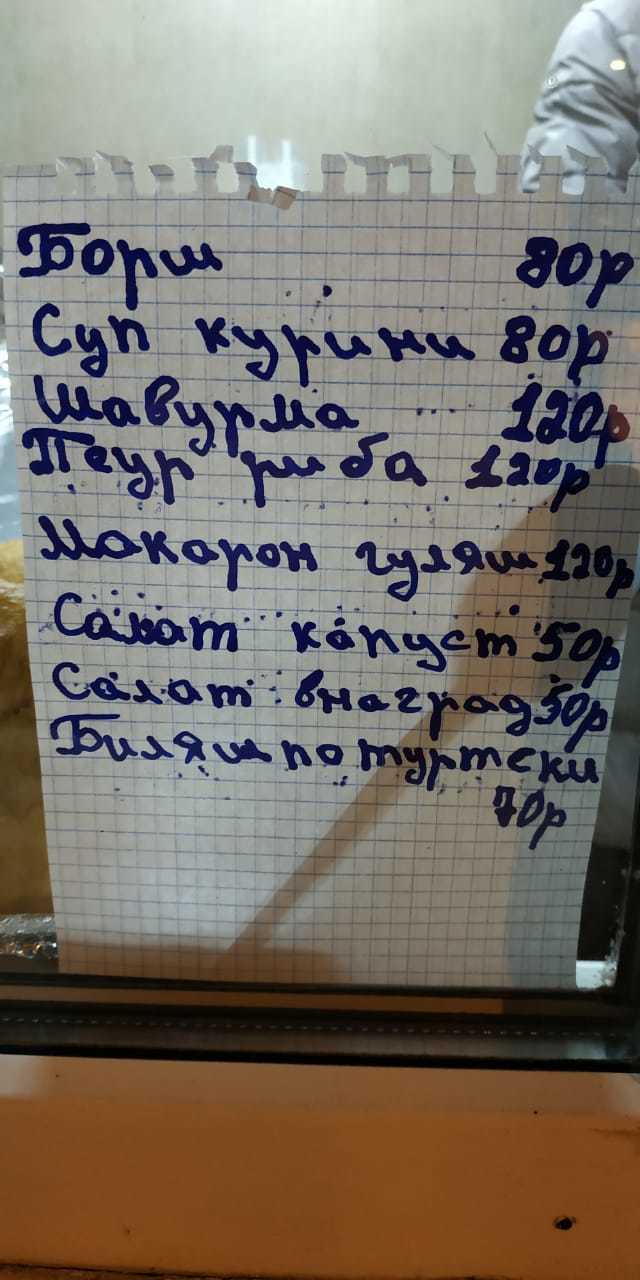 Борш 80р
Суп курини 80р
Шавурма 120р
Пеур риба 120р
Макарон гуляш 120р
Салат капуст 50р
Салат внаград 50р
Биляш по туртски
70р